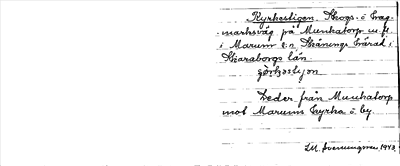 Kyrkostigen. Skogs- o. hag-
marksväg på Munkatorp m.fl.
i Marum sn, Skånings härad,
Skaraborgs län
Leder från Munkatorp
mot Marums kyrka o. by.
1943.